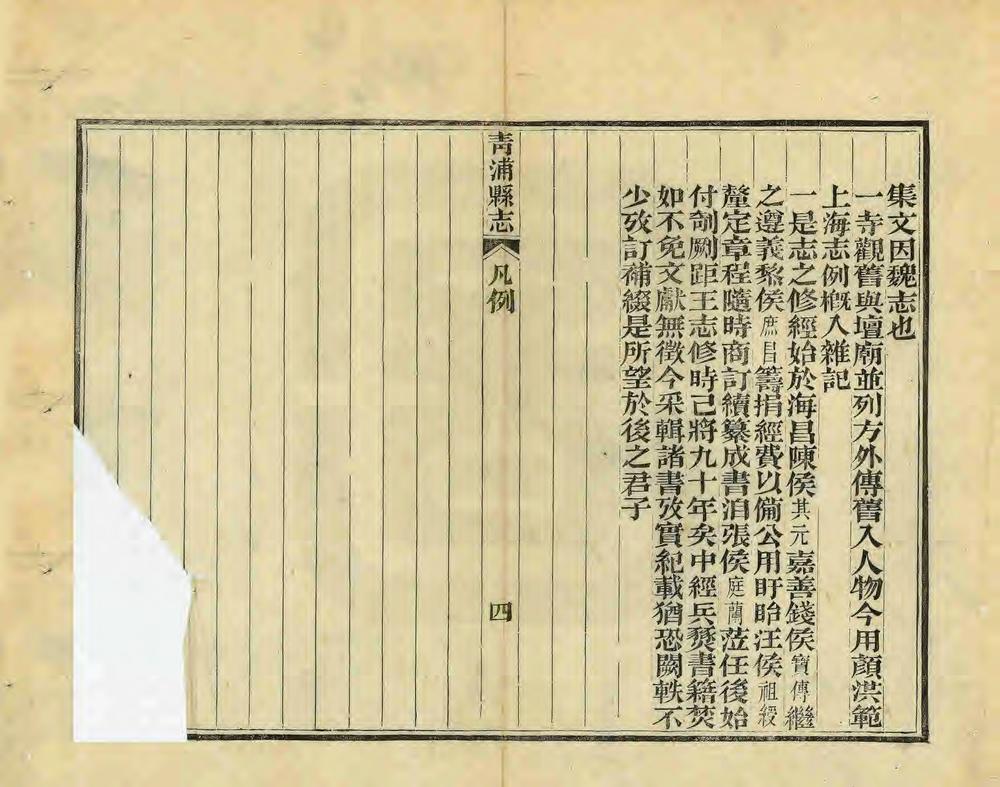 集文因魏志也
一寺觀舊與壇廟並列方外傳舊入人物今用顏洪範
上海志例槪入雜記
一是志之修經始於海昌陳侯其元嘉善錢侯寶傳繼
之遵義黎侯庶昌籌捐經費以備公用盱眙汪侯祖綬
釐定章程隨時商訂續纂成書洎張侯庭蘭蒞任後始
付剞劂距王志修時已將九十年矣中經兵燹書籍焚
如不免文獻無徵今采輯諸書攷實紀載猶恐闕軼不
少攷訂補綴是所望於後之君子
靑浦縣志
凡例
四